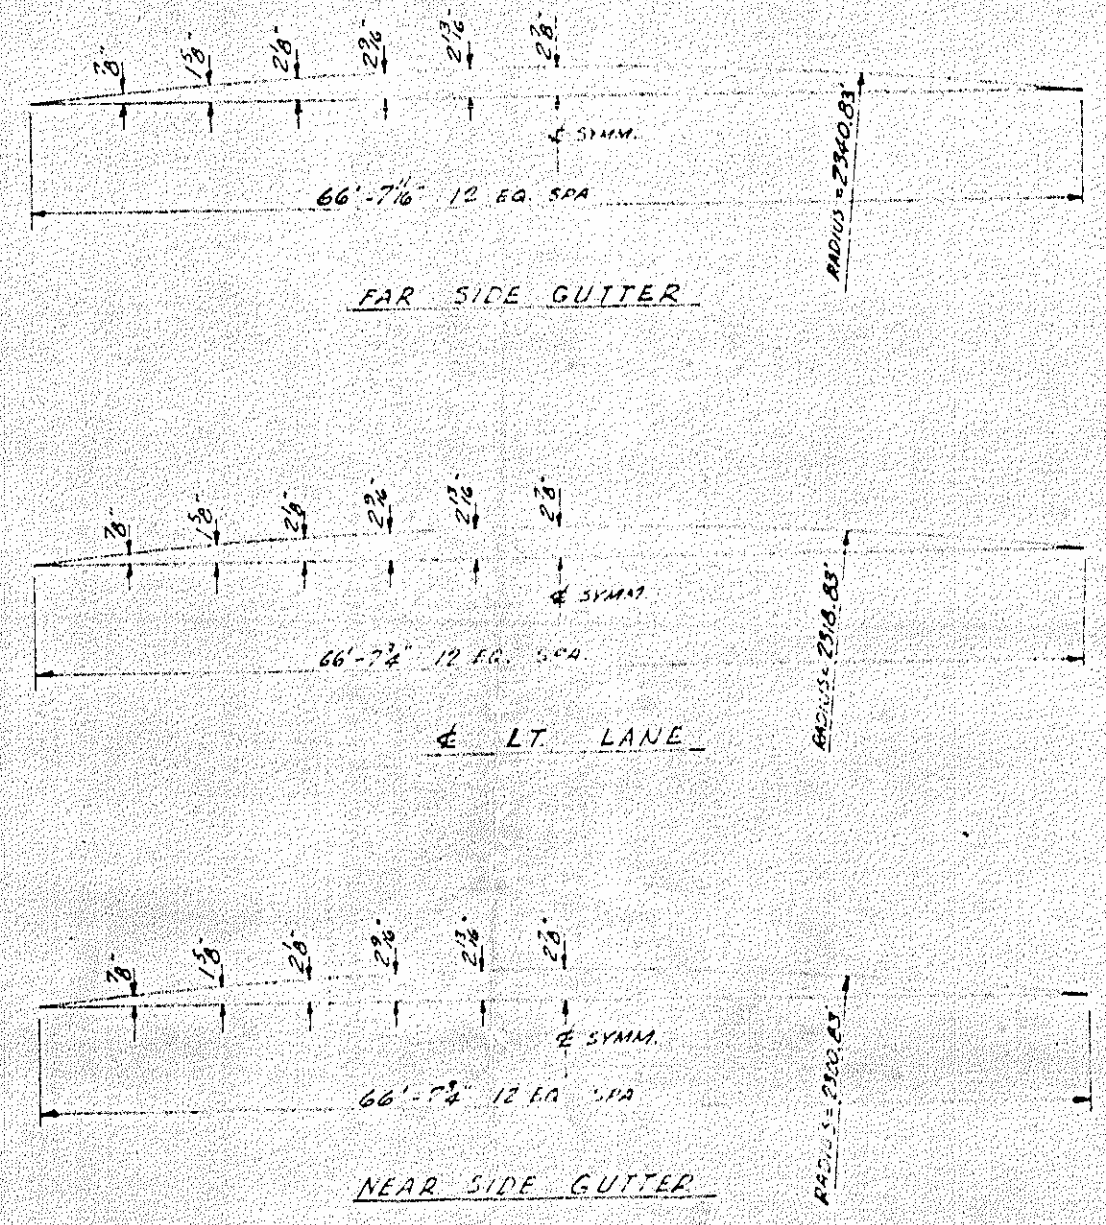 7/8" 1 5/8" 2 1/8" 2 9/16" 2 13/16" 2 7/8"
℄ SYMM.
66'-7 11/16" 12 EQ. SPA
RADIUS = 2340.83'
FAR SIDE GUTTER
7/8" 1 5/8" 2 1/8" 2 9/16" 2 13/16" 2 7/8"
℄ SYMM.
66'-7 3/4" 12 EQ. SPA.
RADIUS = 2318.83'
℄ LT. LANE
7/8" 1 5/8" 2 1/8" 2 9/16" 2 13/16" 2 7/8"
℄ SYMM.
66'-7 3/4" 12 EQ SPA
RADIUS = 2300.83'
NEAR SIDE GUTTER